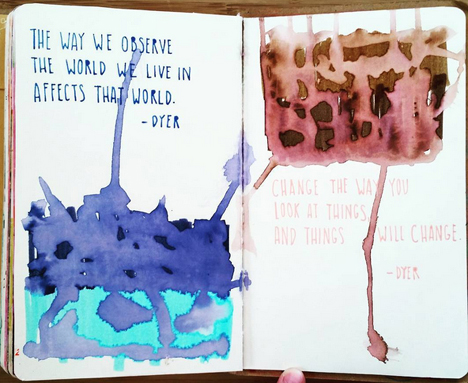 THE WAY WE OBSERVE
THE WORLD WE LIVE IN
AFFECTS THAT WORLD.
-DYER
CHANGE THE WAY YOU
LOOK AT THINGS,
AND THINGS WILL CHANGE.
-DYER
2